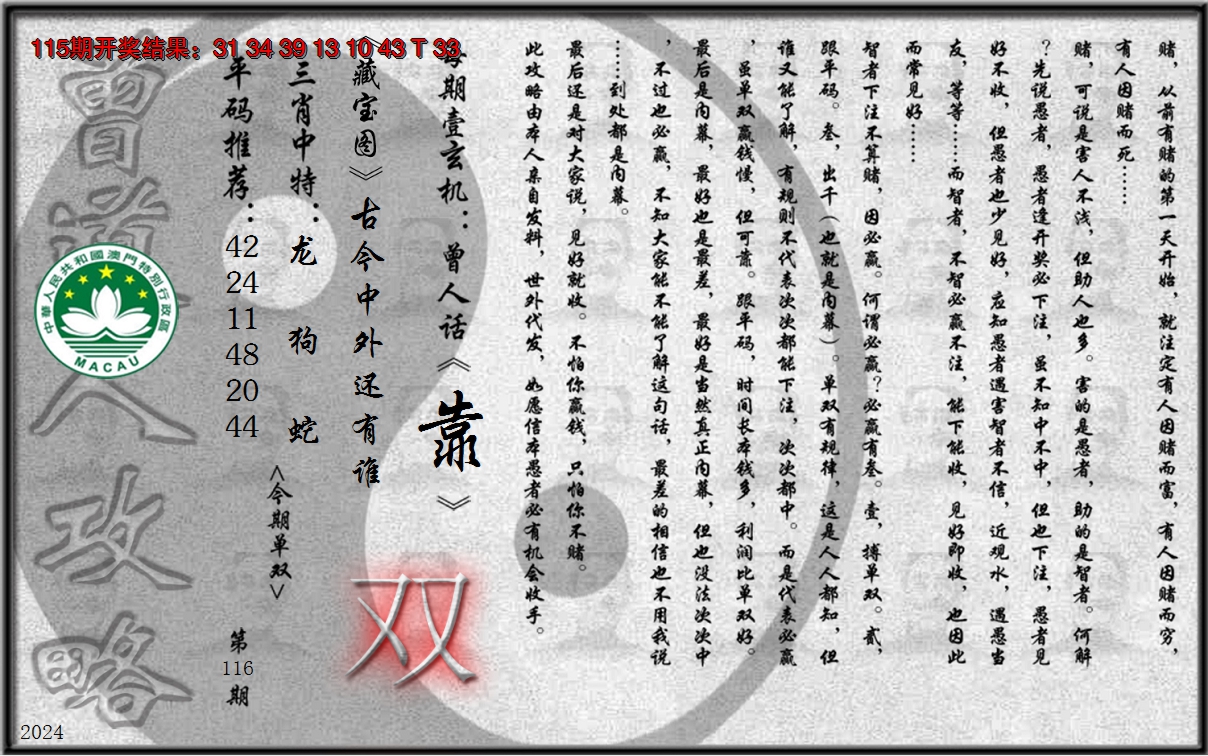 115期开奖结果：31 34 39 13 10 43 T 33
赌，从前有赌的第一天开始，就注定有人因赌而富，有人因赌而穷，
有人因赌而死……
赌，可说是害人不浅，但助人也多。害的是愚者，助的是智者。何解
？先说愚者，愚者逢开奖必下注，虽不知中不中，但也下注，愚者见
好不收，但愚者也少见好，应知愚者遇害智者不信，近观水，遇愚当
友，等等……而智者，不智必赢不注，能下能收，见好即收，也因此
而常见好……
智者下注不算赌，因必赢。何谓必赢？必赢有叁。壹，搏单双。贰，
跟平码。叁，出千（也就是内幕）。单双有规律，这是人人都知，但
谁又能了解，有规则不代表次次都能下注，次次都中。而是代表必赢
，虽单双赢钱慢，但可靠。跟平码，时间长本钱多，利润比单双好。
最后是内幕，最好也是最差，最好是当然真正内幕，但也没法次次中
，不过也必赢，不知大家能不能了解这句话，最差的相信也不用我说
……到处都是内幕。
最后还是对大家说，见好就收。不怕你赢钱，只怕你不赌。
此攻略由本人亲自发料，世外代发，如愿信本愚者必有机会收手。
每期壹玄机：曾人话《靠》
《藏宝图》古今中外还有谁
双
三肖中特：龙 狗 蛇
<今期单双>
平码推荐：42 24 11 48 20 44
第116期
曾道人攻略
中華人民共和國澳門特別行政區
MACAU
2024